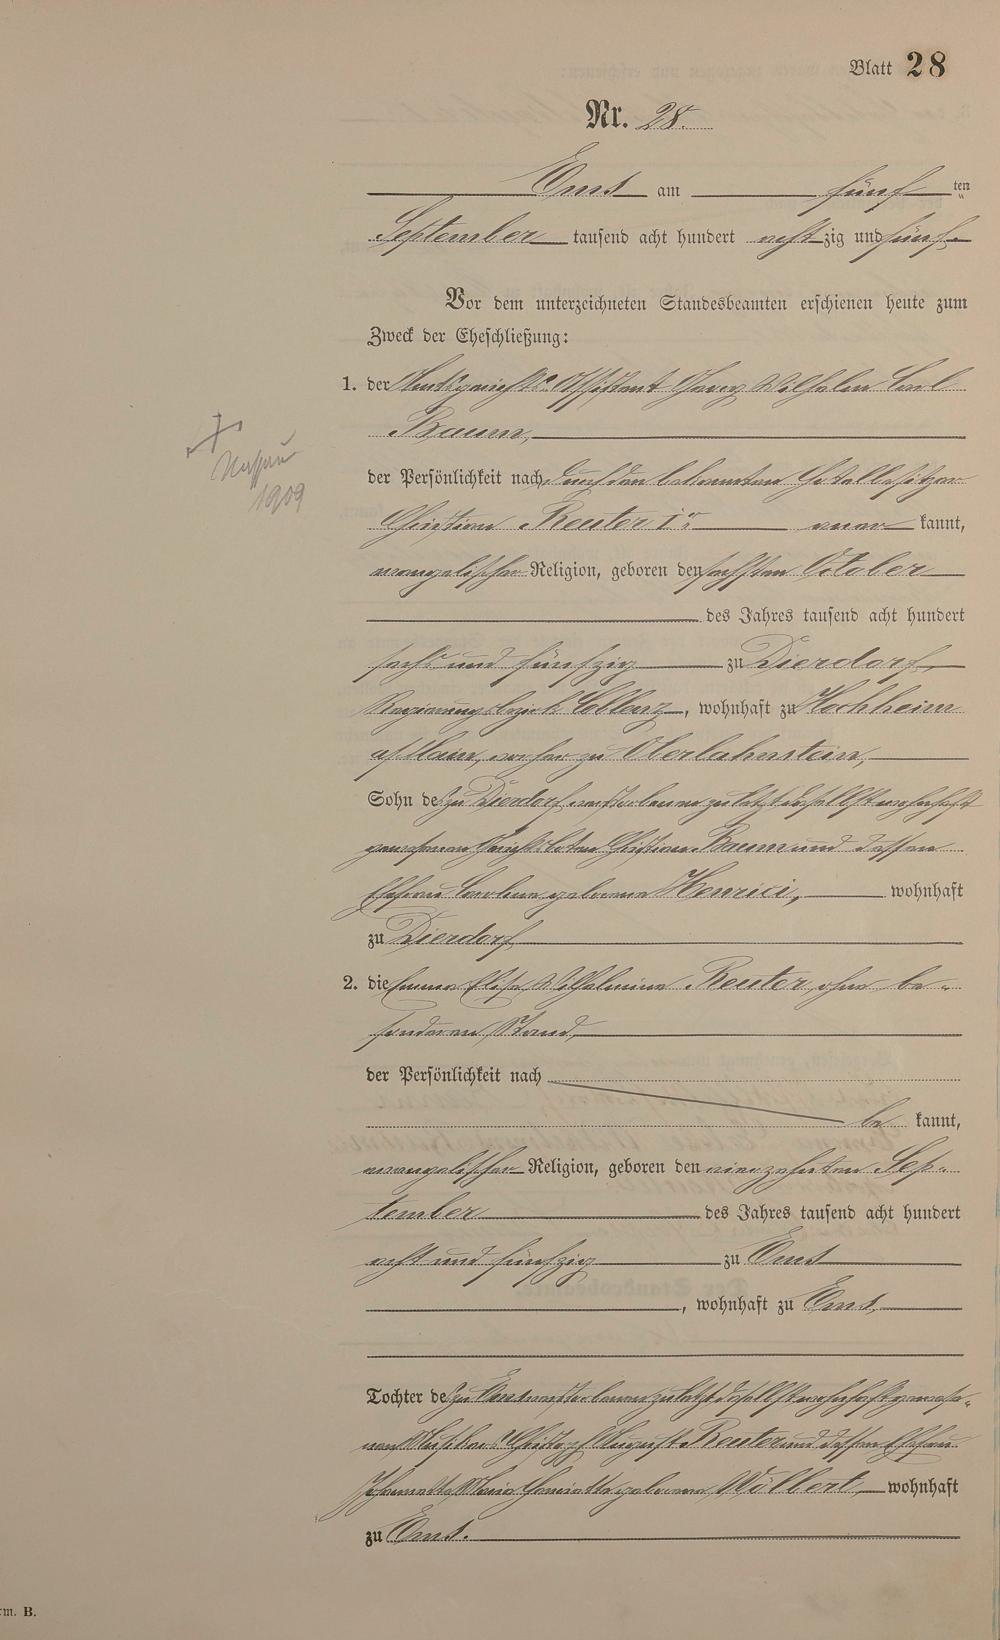 Blatt 28
Nr. 28.
Ems am fünf ten
September tausend acht hundert achtzig und fünf
Vor dem unterzeichneten Standesbeamten erschienen heute zum
Zweck der Eheschließung:
1. der Amtsgerichts-Assistent Georg Wilhelm Carl
Baum,
der Persönlichkeit nach durch den bekannten Hotelbesitzer
Christian Reuter Ir aner kannt,
evangelischer Religion, geboren den sechsten October
des Jahres tausend acht hundert
sechs und fünfzig zu Dierdorf,
Regierungsbezirk Coblenz, wohnhaft zu Hochheim
a/Main, vorher zu Oberlahnstein,
Sohn des zu Dierdorf verstorbenen zuletzt daselbst wohnhaft
gewesenen Gerichtsboten Christian Baum und dessen
Ehefrau Caroline geborene Henrici, wohnhaft
zu Dierdorf
2. die Emma Elise Wilhelmine Reuter, ohne be-
sonderen Stand,
der Persönlichkeit nach
be kannt,
evangelischer Religion, geboren den vierzehnten Sep-
tember des Jahres tausend acht hundert
acht und fünfzig zu Ems
, wohnhaft zu Ems,
Tochter des zu Ems verstorbenen zuletzt daselbst wohnhaft gewese-
nen August Reuter und dessen Ehefrau
Maria Henriette geborene Wölbert, wohnhaft
zu Ems.
+
Nassau
1909
rm. B.